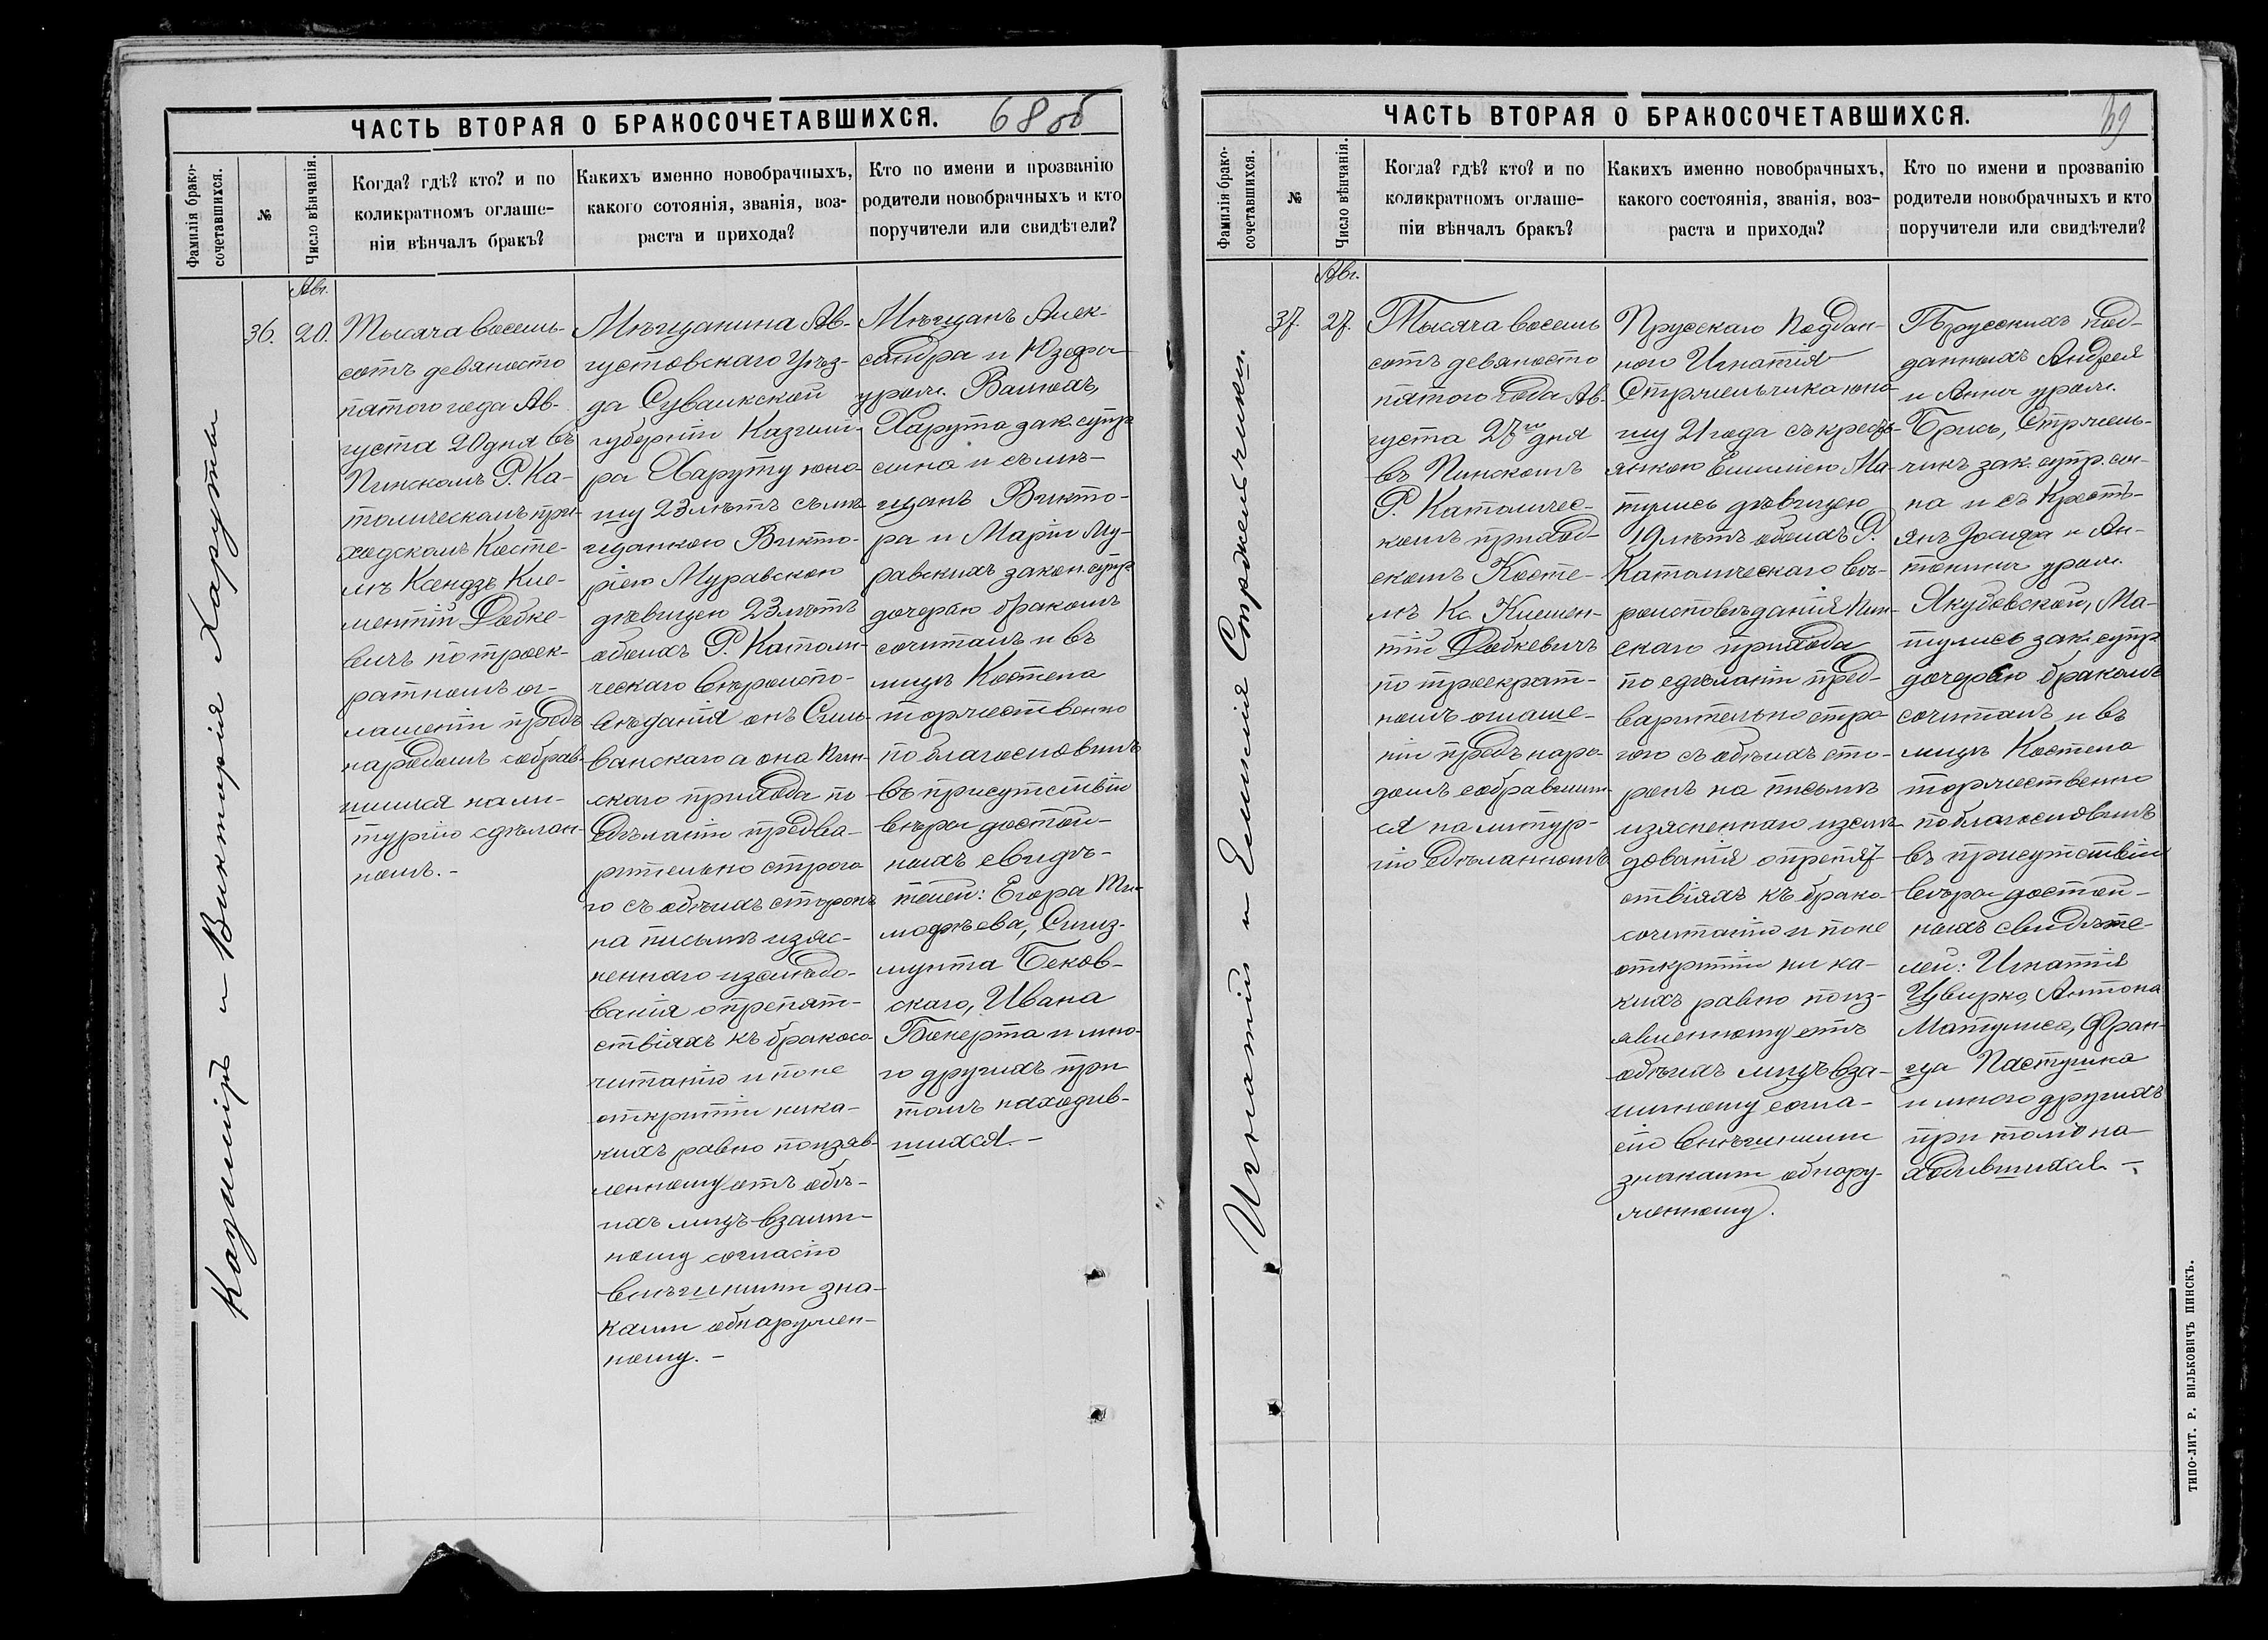 ЧАСТЬ ВТОРАЯ О БРАКОСОЧЕТАВШИХСЯ.
68 об
Фамилія брако-
сочетавшихся.
№
Число вѣнчанія.
Когда? гдѣ? кто? и по
коликратномъ оглаше-
ніи вѣнчалъ бракъ?
Какихъ именно новобрачныхъ,
какого сотоянія, званія, воз-
раста и прихода?
Кто по имени и прозванію
родители новобрачныхъ и кто
поручители или свидѣтели?
Казиміръ и Викторія Харуты
36.
Авг.
20.
Тысяча восемь-
сотъ девяносто
пятого года Ав-
густа 20 дня въ
Пинскомъ Р. Ка-
толическомъ при-
ходскомъ Косте-
лѣ Ксендзъ Кле-
ментій Добке-
вичъ по троек-
ратномъ ог-
лашеніи предъ
народомъ собрав-
шимся на ли-
тургію сдѣлан-
номъ. -
Мѣщанина Ав-
густовскаго Уѣз-
да Сувалкской
губерніи Казими-
ра Харуту юно-
шу 23 лѣтъ съ мѣ-
щанкою Викто-
ріею Муравскою
дѣвицею 23 лѣтъ
обоихъ Р. Католи-
ческаго вѣроиспо-
вѣданія онъ Силь-
ванскаго а она Пин-
скаго прихода по
сдѣланіи предва-
рительно строга-
го съ обѣихъ сторонъ
на письмѣ изяс-
неннаго изслѣдо-
ванія о препят-
ствіяхъ къ бракосо-
читанію и по не
открытіи ника-
кихъ равно по изяв-
ленному отъ обѣ-
ихъ лицъ взаим-
ному согласію
внѣшними зна-
ками обнаружен-
ному. -
Мѣщанъ Алек-
сандра и Юзефы
урож. Валюхъ,
Харута зак. супр.
сына и съ мѣ-
щанъ Викто-
ра и Маріи Му-
равскихъ закон. супр.
дочерью бракомъ
сочиталъ и въ
лицѣ Костела
торжественно
поблагословилъ
въ присутствіи
вѣры достой-
ныхъ свидѣ-
телей: Егора Ти-
мофѣева, Сигиз-
мунта Беков-
скаго, Ивана
Бонерта и мно-
го другихъ при
томъ находив-
шихся. -
ЧАСТЬ ВТОРАЯ О БРАКОСОЧЕТАВШИХСЯ.
69
Фамилія брако-
сочетавшихся.
№
Число вѣнчанія.
Когда? гдѣ? кто? и по
коликратномъ оглаше-
ніи вѣнчалъ бракъ?
Какихъ именно новобрачныхъ,
какого состоянія, званія, воз-
раста и прихода?
Кто по имени и прозванію
родители новобрачныхъ и кто
поручители или свидѣтели?
Игнатій и Емилія Стржельчики
37.
Авг.
27.
Тысяча восемь
сотъ девяносто
пятого года Ав-
густа 27го дня
въ Пинскомъ
Р. Католичес-
комъ приход-
скомъ Косте-
лѣ Кс. Клемен-
тій Добкевичъ
по троекрат-
номъ оглаше-
ніи предъ наро-
домъ собравшим-
ся на литур-
гію сдѣланномъ
Прусскаго поддан-
ного Игнатія
Стржельчика юно-
шу 21 года съ кресть-
янкою Емиліею Ма-
тулисъ дѣвицею
19 лѣтъ обоихъ Р.
Католическаго вѣ-
роисповѣданія Пин-
скаго прихода
по сдѣланіи пред-
варительно стро-
гого съ обѣихъ сто-
ронъ на письмѣ
изясненнаго изслѣ-
дованія о препят-
ствіяхъ къ брако-
сочитанію и по не
открытіи ни ка-
кихъ равно по из-
явленному отъ
обѣихъ лицъ вза-
имному согла-
сію внѣшними
знаками обнару-
женному.
Прусскихъ под-
данныхъ Андрея
и Анны урож.
Брисъ, Стржель-
чикъ зак. супр. сы-
на и съ кресть-
янъ Іосифа и Ан-
тонины урож.
Якубовской, Ма-
тулисъ зак. супр.
дочерью бракомъ
сочиталъ и въ
лицѣ Костела
торжественно
поблагословилъ
въ присутствіи
вѣры достой-
ныхъ свидѣте-
лей: Игнатія
Цвирко, Антона
Матулиса, Фран-
ца Пастушка
и много другихъ
при томъ на-
ходившихся. -
ТИПО-ЛИТ. Р. ВИЛЬКОВИЧЪ ПИНСКЪ.